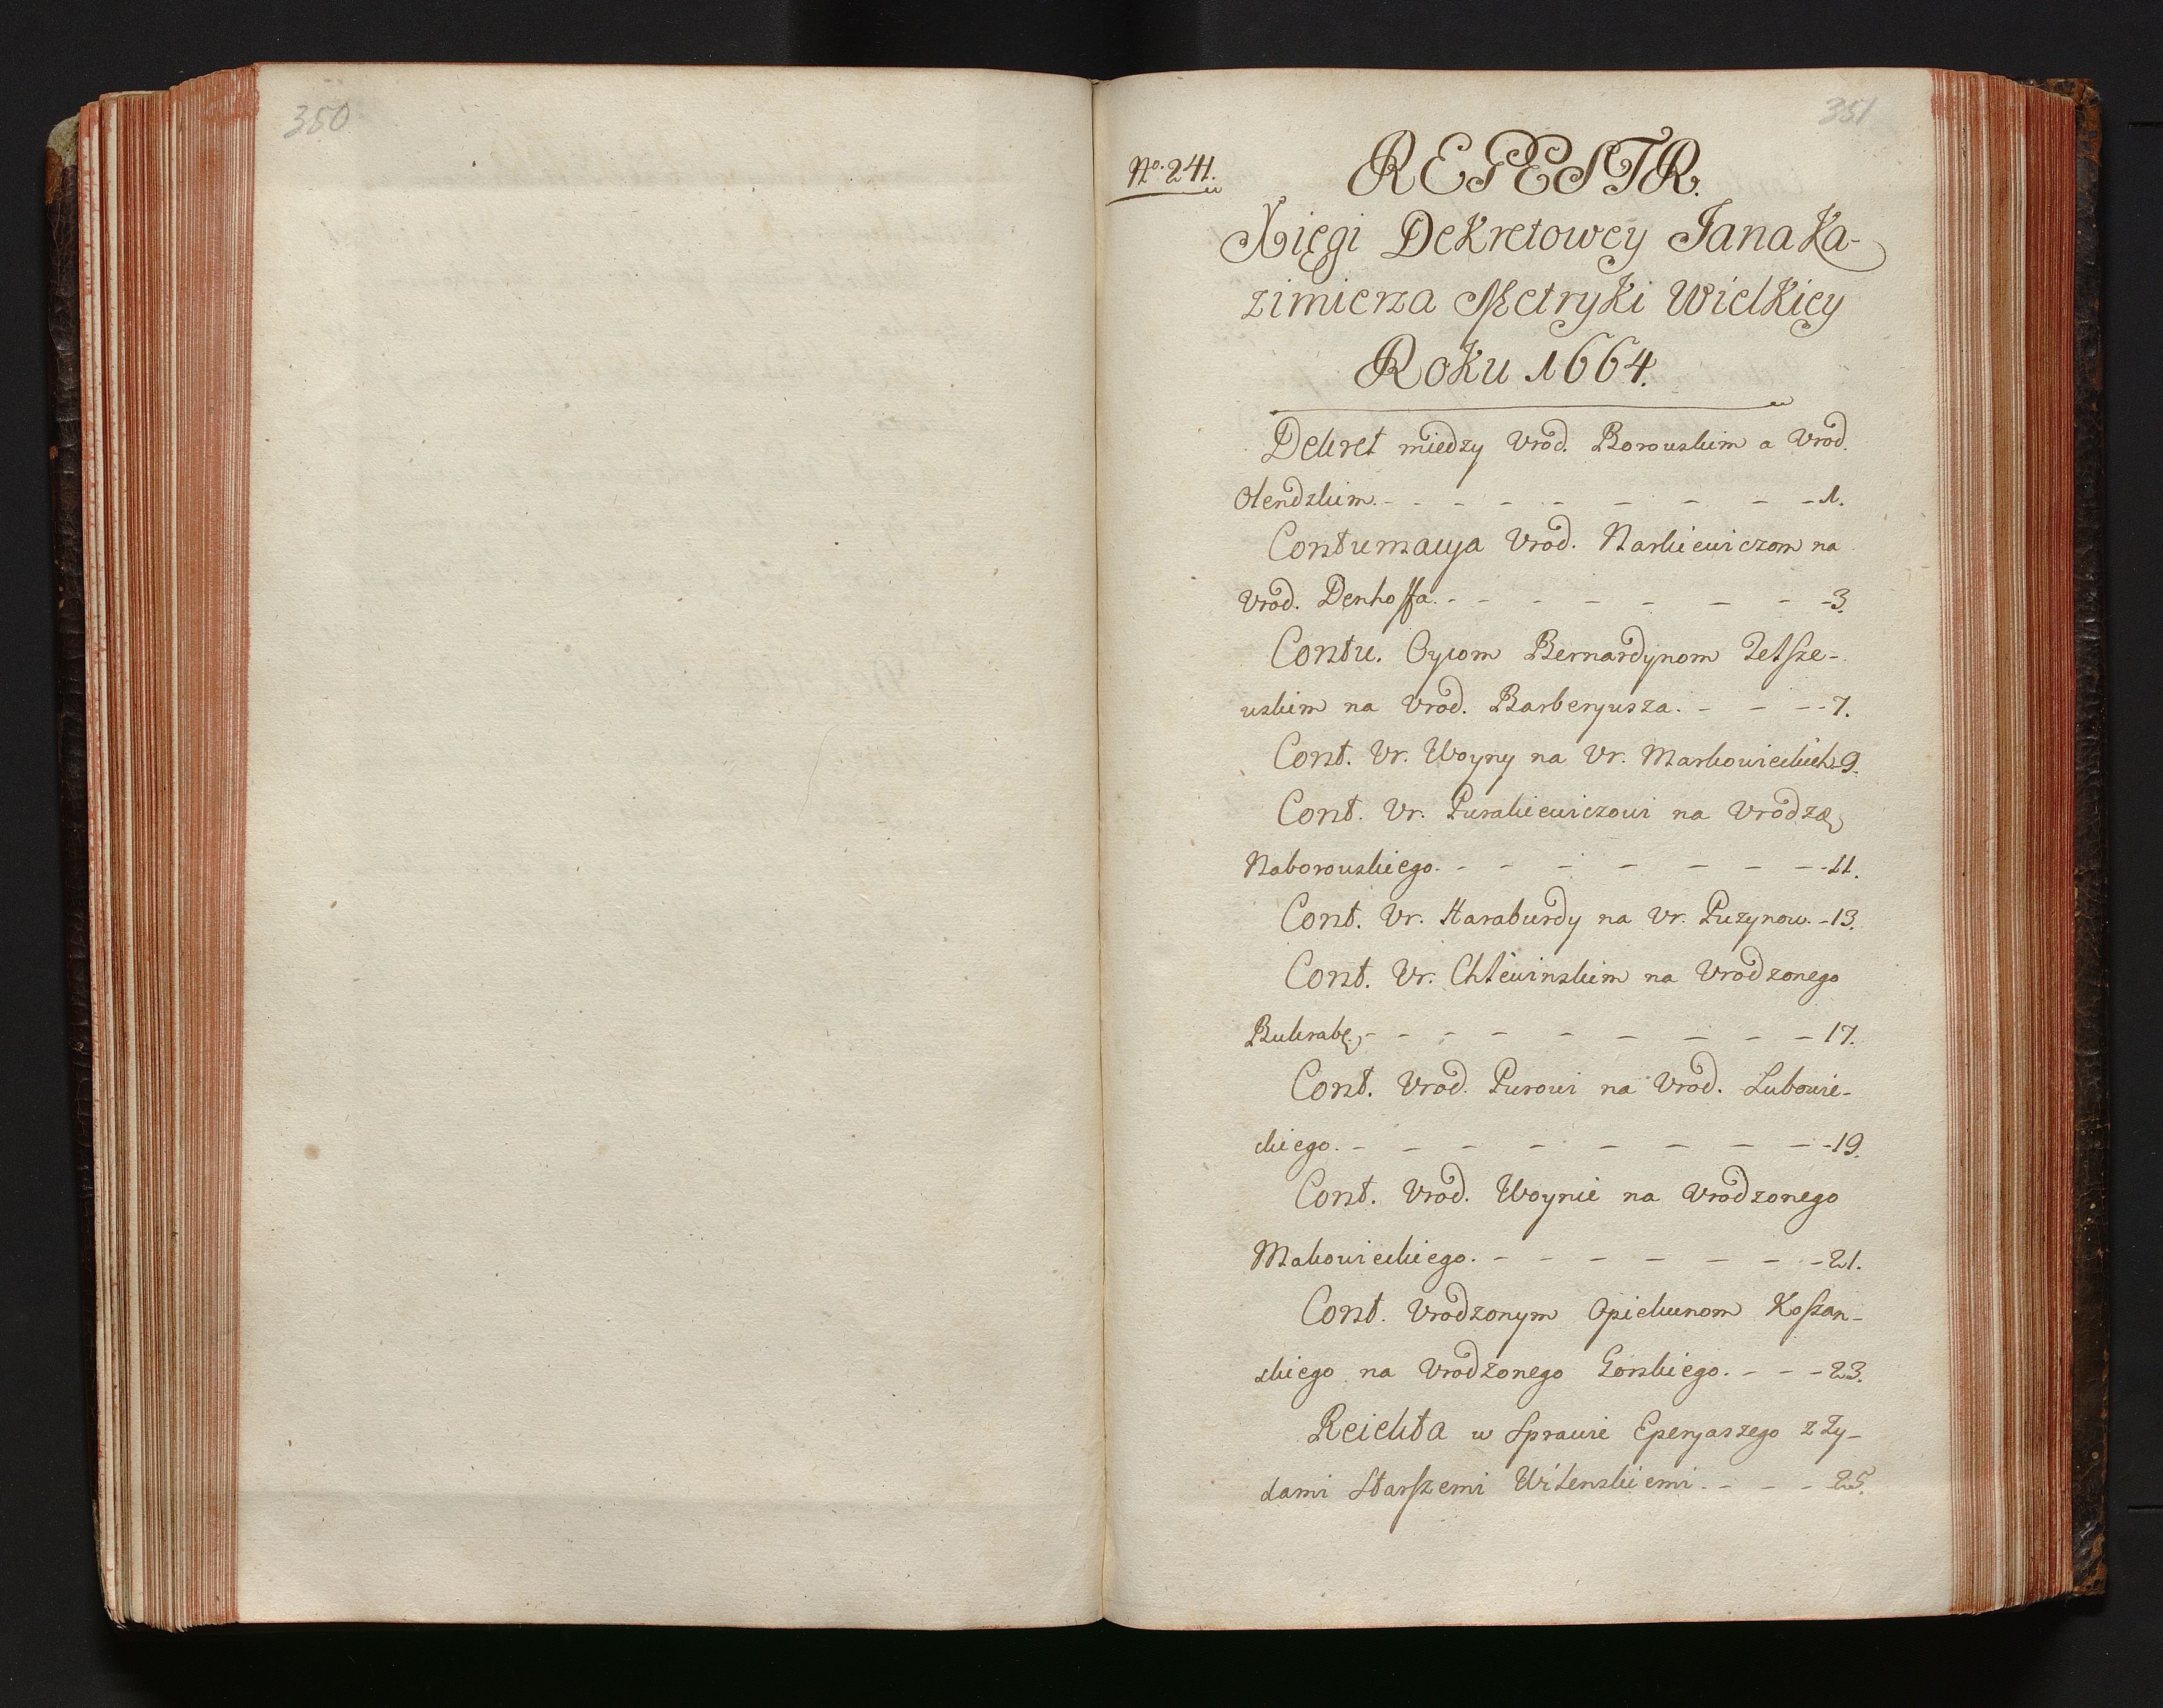 350
351
No. 241.
REGESTR.
Xięgi Dekretowey Jana Ka-
zimierza Metryki Wielkiey
Roku 1664.
Dekret miedzy Vrod. Borowskim a Vrod.
Olendzkim. - - - - - - - - - 1.
Contumacya Vrod. Narkiewiczom na
Vrod. Denhoffa. - - - - - - - - 3.
Contu. Oycom Bernardynom Telsze-
wskim na Vrod. Barberyusza. - - - - 7.
Cont. Vr. Woyny na Vr. Markowieckich - 9.
Cont. Vr. Purakiewiczowi na Vrodzo
Naborowskiego. - - - - - - - - 11.
Cont. Vr. Haraburdy na Vr. Puzynow. - 13.
Cont. Vr. Chlewinskim na Vrodzonego
Bukrabę. - - - - - - - - - 17.
Cont. Vrod. Purowi na Vrod. Lubowie-
ckiego. - - - - - - - - - 19.
Cont. Vrod. Woynie na Vrodzonego
Makowieckiego. - - - - - - - - 21.
Cont. Vrodzonym Opiekunom Koszan-
skiego na Vrodzonego Gorskiego. - - - 23.
Reiekta w Sprawie Eperyaszego z Zy-
dami Starszemi Wilenskiemi. - - - 25.